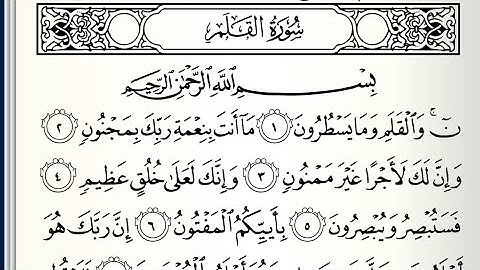 سُورَةُ القَلَمِ
بِسْمِ ٱللَّهِ ٱلرَّحْمَٰنِ ٱلرَّحِيمِ
نٓ ۚ وَٱلْقَلَمِ وَمَا يَسْطُرُونَ ١ مَآ أَنتَ بِنِعْمَةِ رَبِّكَ بِمَجْنُونٍ ٢
وَإِنَّ لَكَ لَأَجْرًا غَيْرَ مَمْنُونٍ ٣ وَإِنَّكَ لَعَلَىٰ خُلُقٍ عَظِيمٍ ٤
فَسَتُبْصِرُ وَيُبْصِرُونَ ٥ بِأَييِّكُمُ ٱلْمَفْتُونُ ٦ إِنَّ رَبَّكَ هُوَ